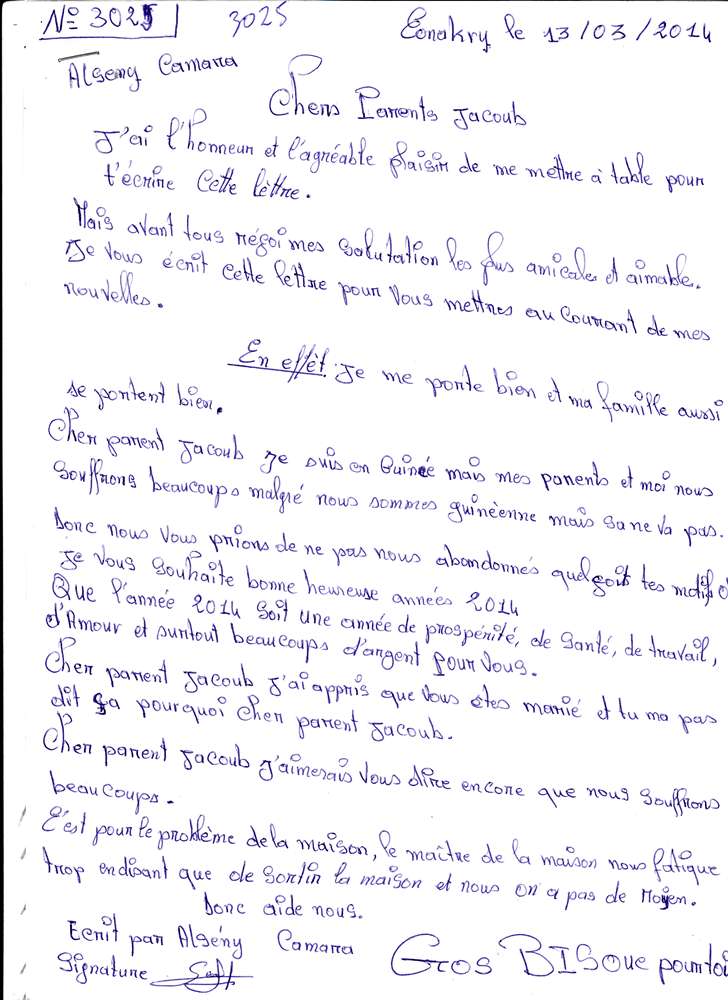 N° 3025 3025 Conakry le 13/03/2014
Algeny Camara
Chers Parents Jacoub
J'ai l'honneur et l'agréable plaisir de me mettre à table pour
t'écrire Cette lèttre.
Mais avant tous régoi mes salutation les plus amicales et aimable.
Je vous écrit cette lèttre pour vous mettres au Courrant de mes
nouvelles.
En effèt. Je me porte bien et ma famille aussi
se portent bien.
Cher parent Jacoub Je suis en Guinée mais mes parents et moi nous
souffrons beaucoups malgré nous sommes guinéenne mais sa ne va pas.
Donc nous vous prions de ne pas nous abandonnés quelsoit tes motifs
Je vous souhaite bonne heureuse années 2014
Que l'année 2014 soit une année de prospérité, de Santé, de travail,
d'Amour et surtout beaucoups d'argent pour vous.
Cher parent Jacoub J'ai appris que vous êtes marié et tu ma pas
dit sa pourquoi cher parent Jacoub.
Cher parent Jacoub j'aimerais vous dire encore que nous souffrons
beaucoups.
C'est pour le problème de la maison, le maître de la maison nous fatigue
trop en disant que de sortir la maison et nous on a pas de Moyen.
Donc aide nous.
Ecrit par Algény Camara
Signature Gros BISOUe pourtoi